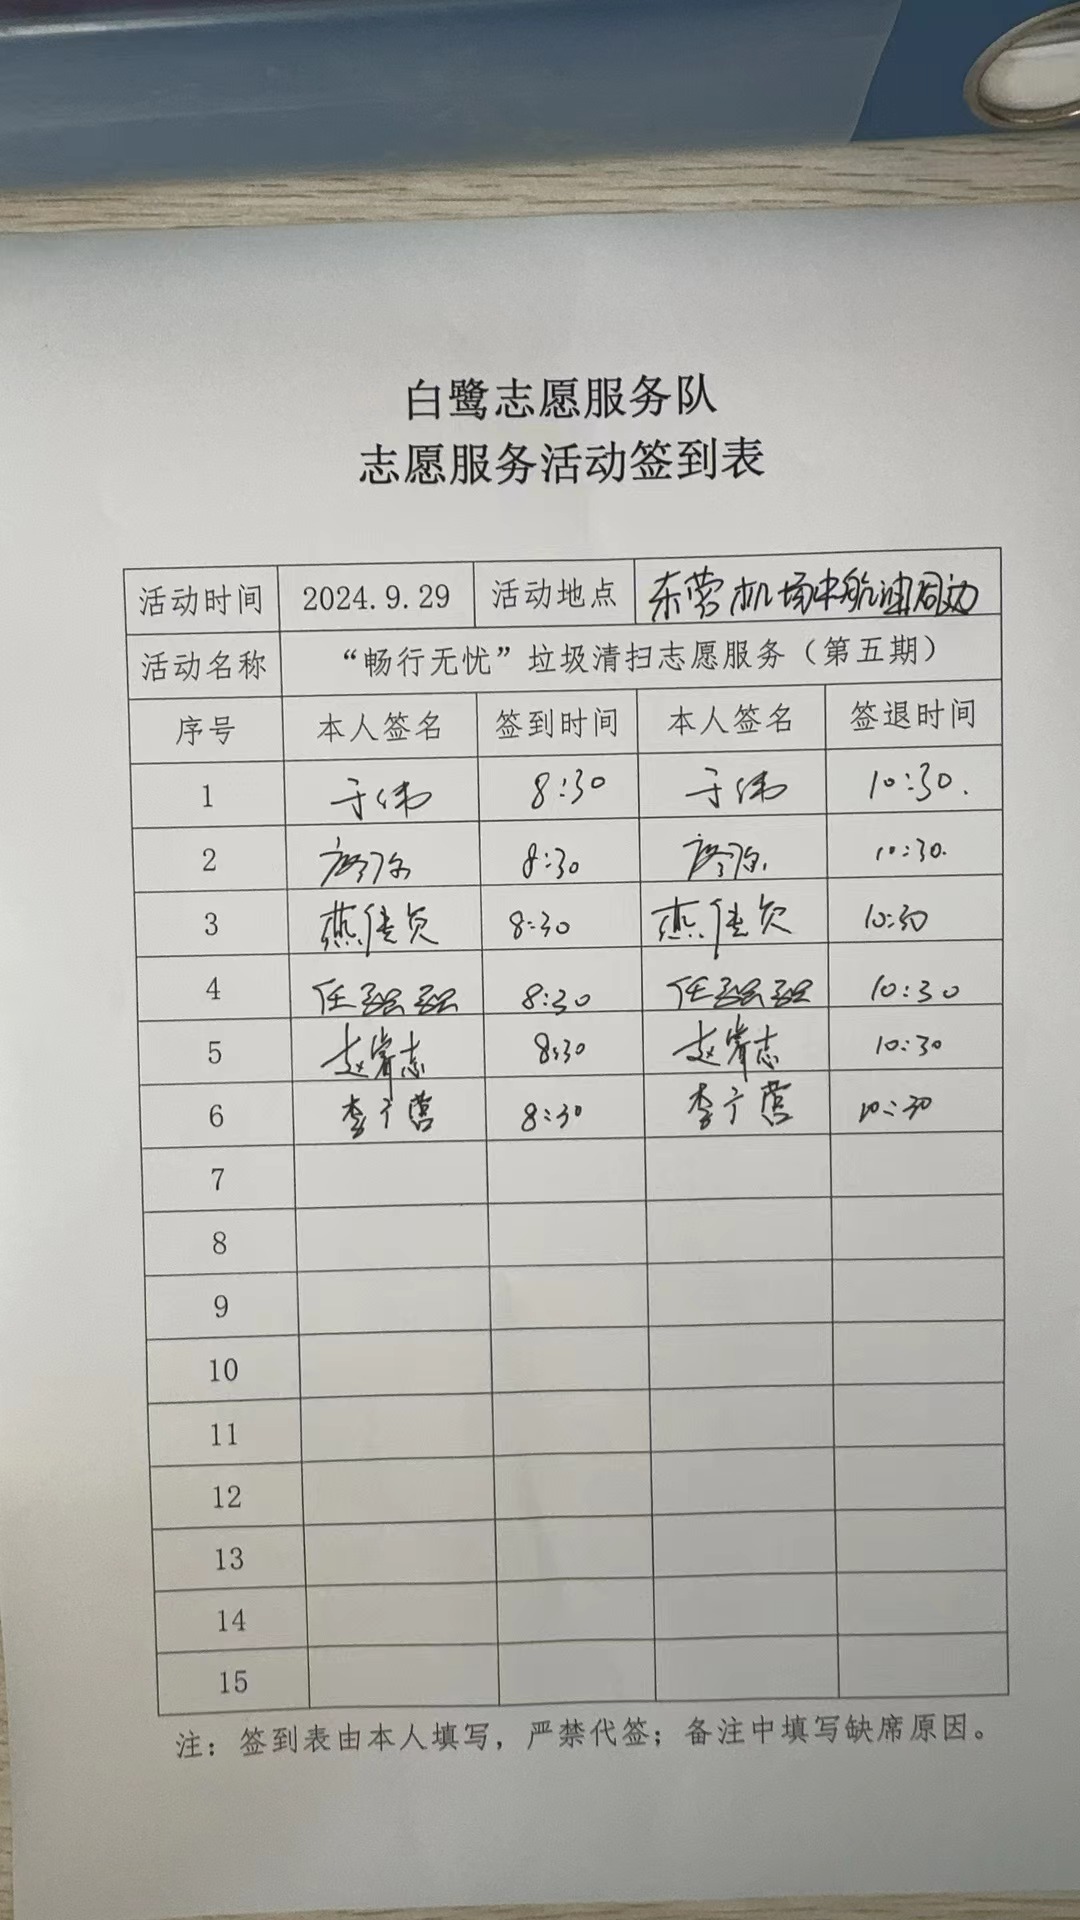 白鹭志愿服务队
志愿服务活动签到表
活动时间 2024.9.29 活动地点 东营机场中航油周边
活动名称 “畅行无忧”垃圾清扫志愿服务（第五期）
序号 本人签名 签到时间 本人签名 签退时间
1 于伟 8:30 于伟 10:30.
2 8:30 10:30.
3 燕佳贝 8:30 燕佳贝 10:30
4 任 8:30 任 10:30
5 赵睿志 8:30 赵睿志 10:30
6 李广营 8:30 李广营 10:30
7
8
9
10
11
12
13
14
15
注：签到表由本人填写，严禁代签；备注中填写缺席原因。